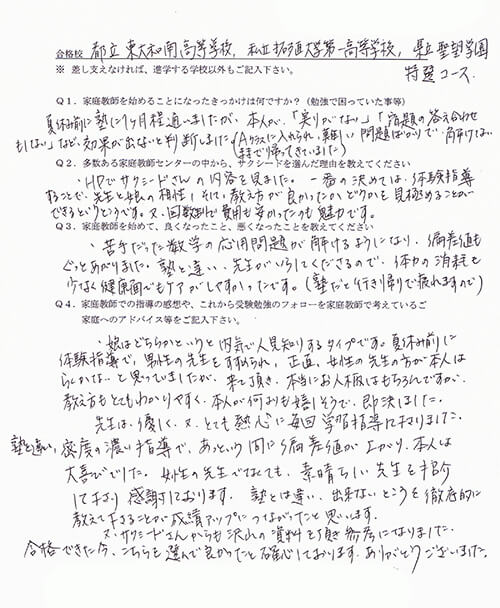 合格校 都立 東大和南高等学校、私立 拓殖大学第一高等学校、県立 聖望学園
※ 差し支えなければ、進学する学校以外もご記入下さい。 特選コース
Q1．家庭教師を始めることになったきっかけは何ですか？（勉強で困っていた事等）
夏休み前に塾に1ヶ月程通いましたが、本人が、「実りがない」「宿題の答え合わせ
もしない」など、効果が出ないと判断しました(Aクラスに入れられ、難しい問題ばかりで、解けない
まま帰ってきていました)
Q2．多数ある家庭教師センターの中から、サクシードを選んだ理由を教えてください
・HPでサクシードさんの内容を見ました。一番の決めては、体験指導
があることで、先生と娘の相性、そして、教え方が良かったかどうかを見極めることが
できるというところです。又、回数割で費用も安かったのも魅力です。
Q3．家庭教師を始めて、良くなったこと、悪くなったことを教えてください
・苦手だった数学の応用問題が解けるようになり、偏差値も
ぐっとあがりました。塾と違い、先生がいらしてくださるので、体力の消耗も
少なく健康面でもケアがしやすかったです。(塾だと行き帰りで疲れますので)
Q4．家庭教師での指導の感想や、これから受験勉強のフォローを家庭教師で考えているご
家庭へのアドバイス等をご記入下さい。
・娘はどちらかというと内気で人見知りするタイプです。夏休み前に
体験指導で、男性の先生をすすめられ、正直、女性の先生の方が本人は
いいかな…と思っていましたが、来て頂き、本当にお人柄はもちろんですが、
教え方もとてもわかりやすく、本人が何よりも嬉しそうで、即決しました。
先生は、優しく、又、とても熱心に毎回学習指導下さりました。
塾と違い、密度の濃い指導で、あっという間に偏差値が上がり、本人は
大喜びでした。女性の先生でなくても、素晴らしい先生を紹介
して下さり感謝しております。塾とは違い、出来ないところを徹底的に
教えて下さることが成績アップにつながったと思います。
又、サクシードさんからも沢山の資料を頂き参考になりました。
合格できた今、こちらを選んで良かったと確心しております。ありがとうございました。